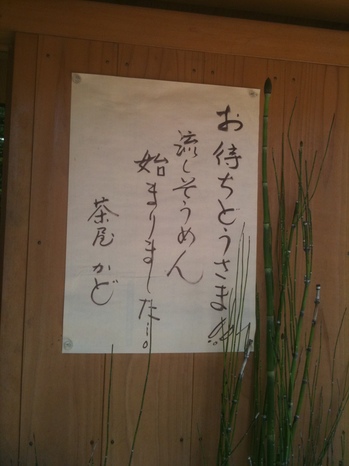 お待ちどうさま!!
流しそうめん
始まりました…。
茶屋 かど